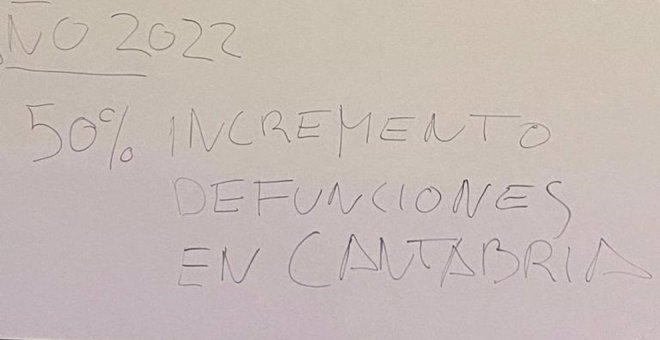 ÑO 2022
50% INCREMENTO
DEFUNCIONES
EN CANTABRIA